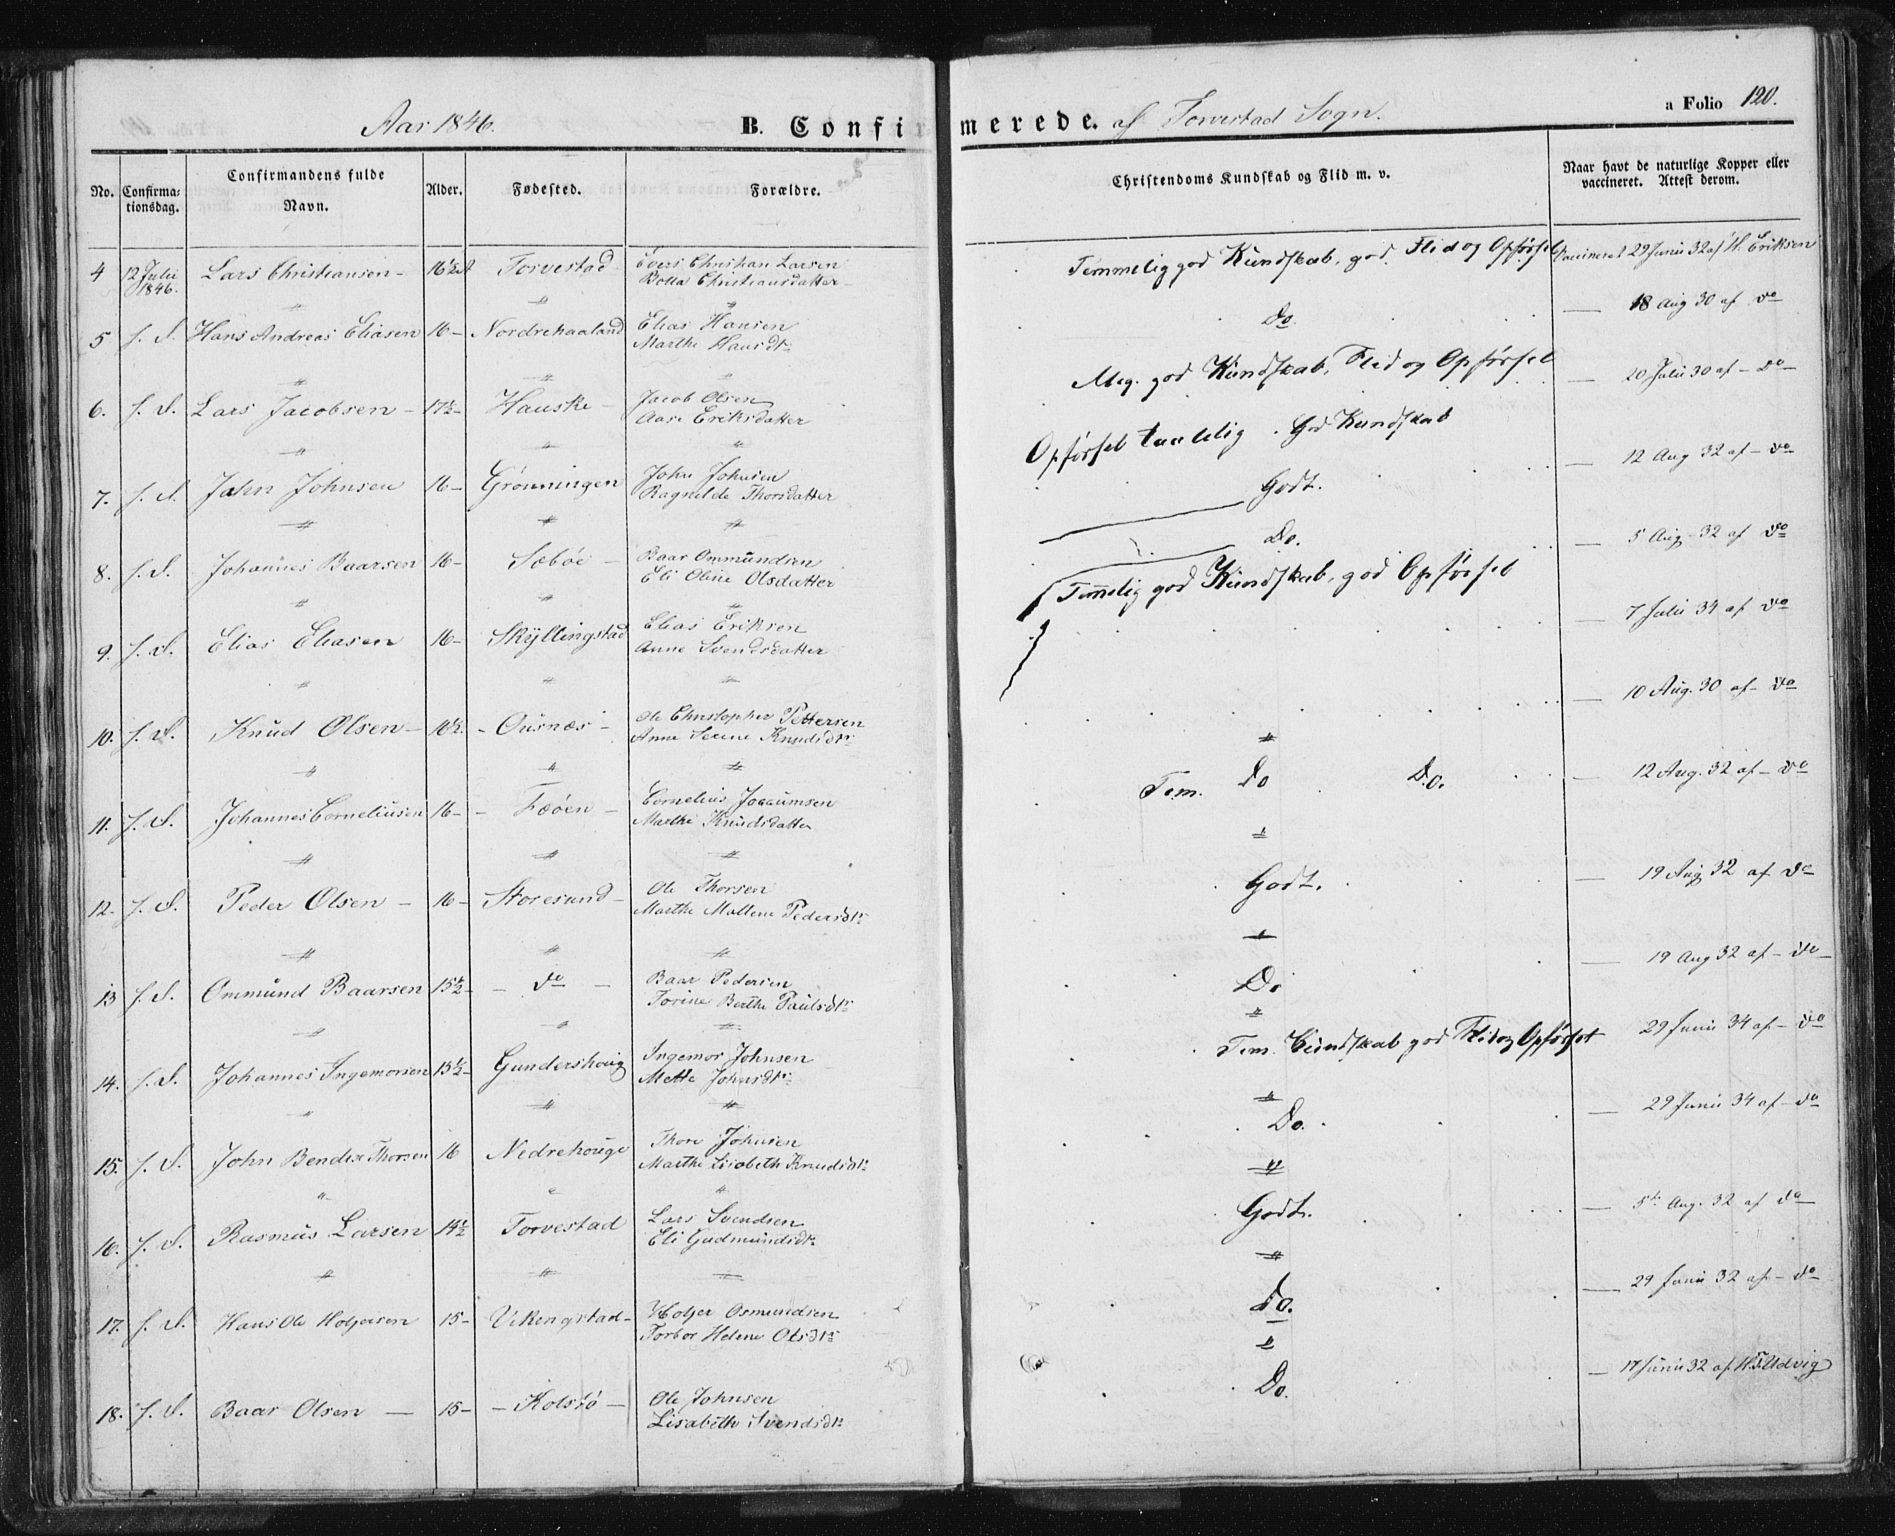 Aar 1846. B. Confirmerede. af Torvestad Sogn. a Folio 120.
No. Confirma-tionsdag. Confirmandens fulde Navn. Alder. Fødested. Forældre. Christendoms Kundskab og Flid m. v. Naar havt de naturlige Kopper eller vaccineret. Attest derom.
4 12 Julii 1846. Lars Christiansen - 16½ Torvestad Evers Christian Larsen
Christiansdatter
Temmelig god Kundskab, god Flid og Opførsel Vaccineret 29 Junii 32 af H. Eriksen
5 f. S. Hans Andreas Eliasen 16 - Nordrehaaland Elias Hansen
Marthe Hansdtr
Do. — 18 Aug 30 af do
6. f. S. Lars Jacobsen - 17½ - Hauske - Jacob Olsen
Aase Eriksdatter
Meg. god Kundskab, Flid og Opførsel — 20 Julii 30 af - do
7. f. S. John Johnsen 16 - Grønningen John Johnsen
Ragnilde Thorsdatter
Opførsel taalelig. God Kundskab
Godt. — 12 Aug 32 af - do
8. f. S. Johannes Baarsen 16 - Sæbøe - Baar Ommundsen
Eli Oline Olsdatter
Do. — 5 Aug - 32 af do
9. f. S. Elias Eliasen 16 - Skyllingstad Elias Eriksen
Anne Svendsdatter
Temelig god Kundskab, god Opførsel — 7 Julii 34 af do
10. f. S. Knud Olsen - 16½. - Ousnæs - Ole Christopher Pettersen
Anne Serine Knudsdtr
— 10 Aug. 30 af - do
11. f. S. Johannes Corneliusen 16 - - Fæøen - Cornelius Joacumsen
Marthe Knudsdatter
Tem. Do Do. — 12 Aug. 32 af - do
12. f. S. Peder Olsen - 16 - Storesund - Ole Thorsen
Marthe Mallene Pedersdtr
Godt. — 19 Aug 32 af do
13 f. S. Ommund Baarsen 15½ - - do - Baar Pedersen
Torine Berthe Paulsdtr
Do — 19 Aug 32 af - do
14. f. S. Johannes Ingemorsen 15½ - Gundershoug Ingemor Johnsen
Mette Johnsdtr
Tem. Kundskab god Flid og Opførsel 29 Junii 34 af - do
15. f. S. John Bendix Thorsen 16 Nedrehouge Thore Johnsen
Marthe Lisabeth Knudsdtr
Do. — 29 Junii 34 af - do
16. f. S. Rasmus Larsen 14½ Torvestad Lars Svendsen
Eli Gudmundsdtr
Godt. — 5te Aug. 32 af do
17. f. S. Hans Ole Holjersen 15 - Vikengstad - Holjer Osmundsen
Torbor Helene Olsdtr
Do. — 29 Junii 32 af - do
18. f. S. Baar Olsen — 15 - - Kolstø - Ole Johnsen
Lisabeth Svendsdtr
Do. — 17 Junii 32 af